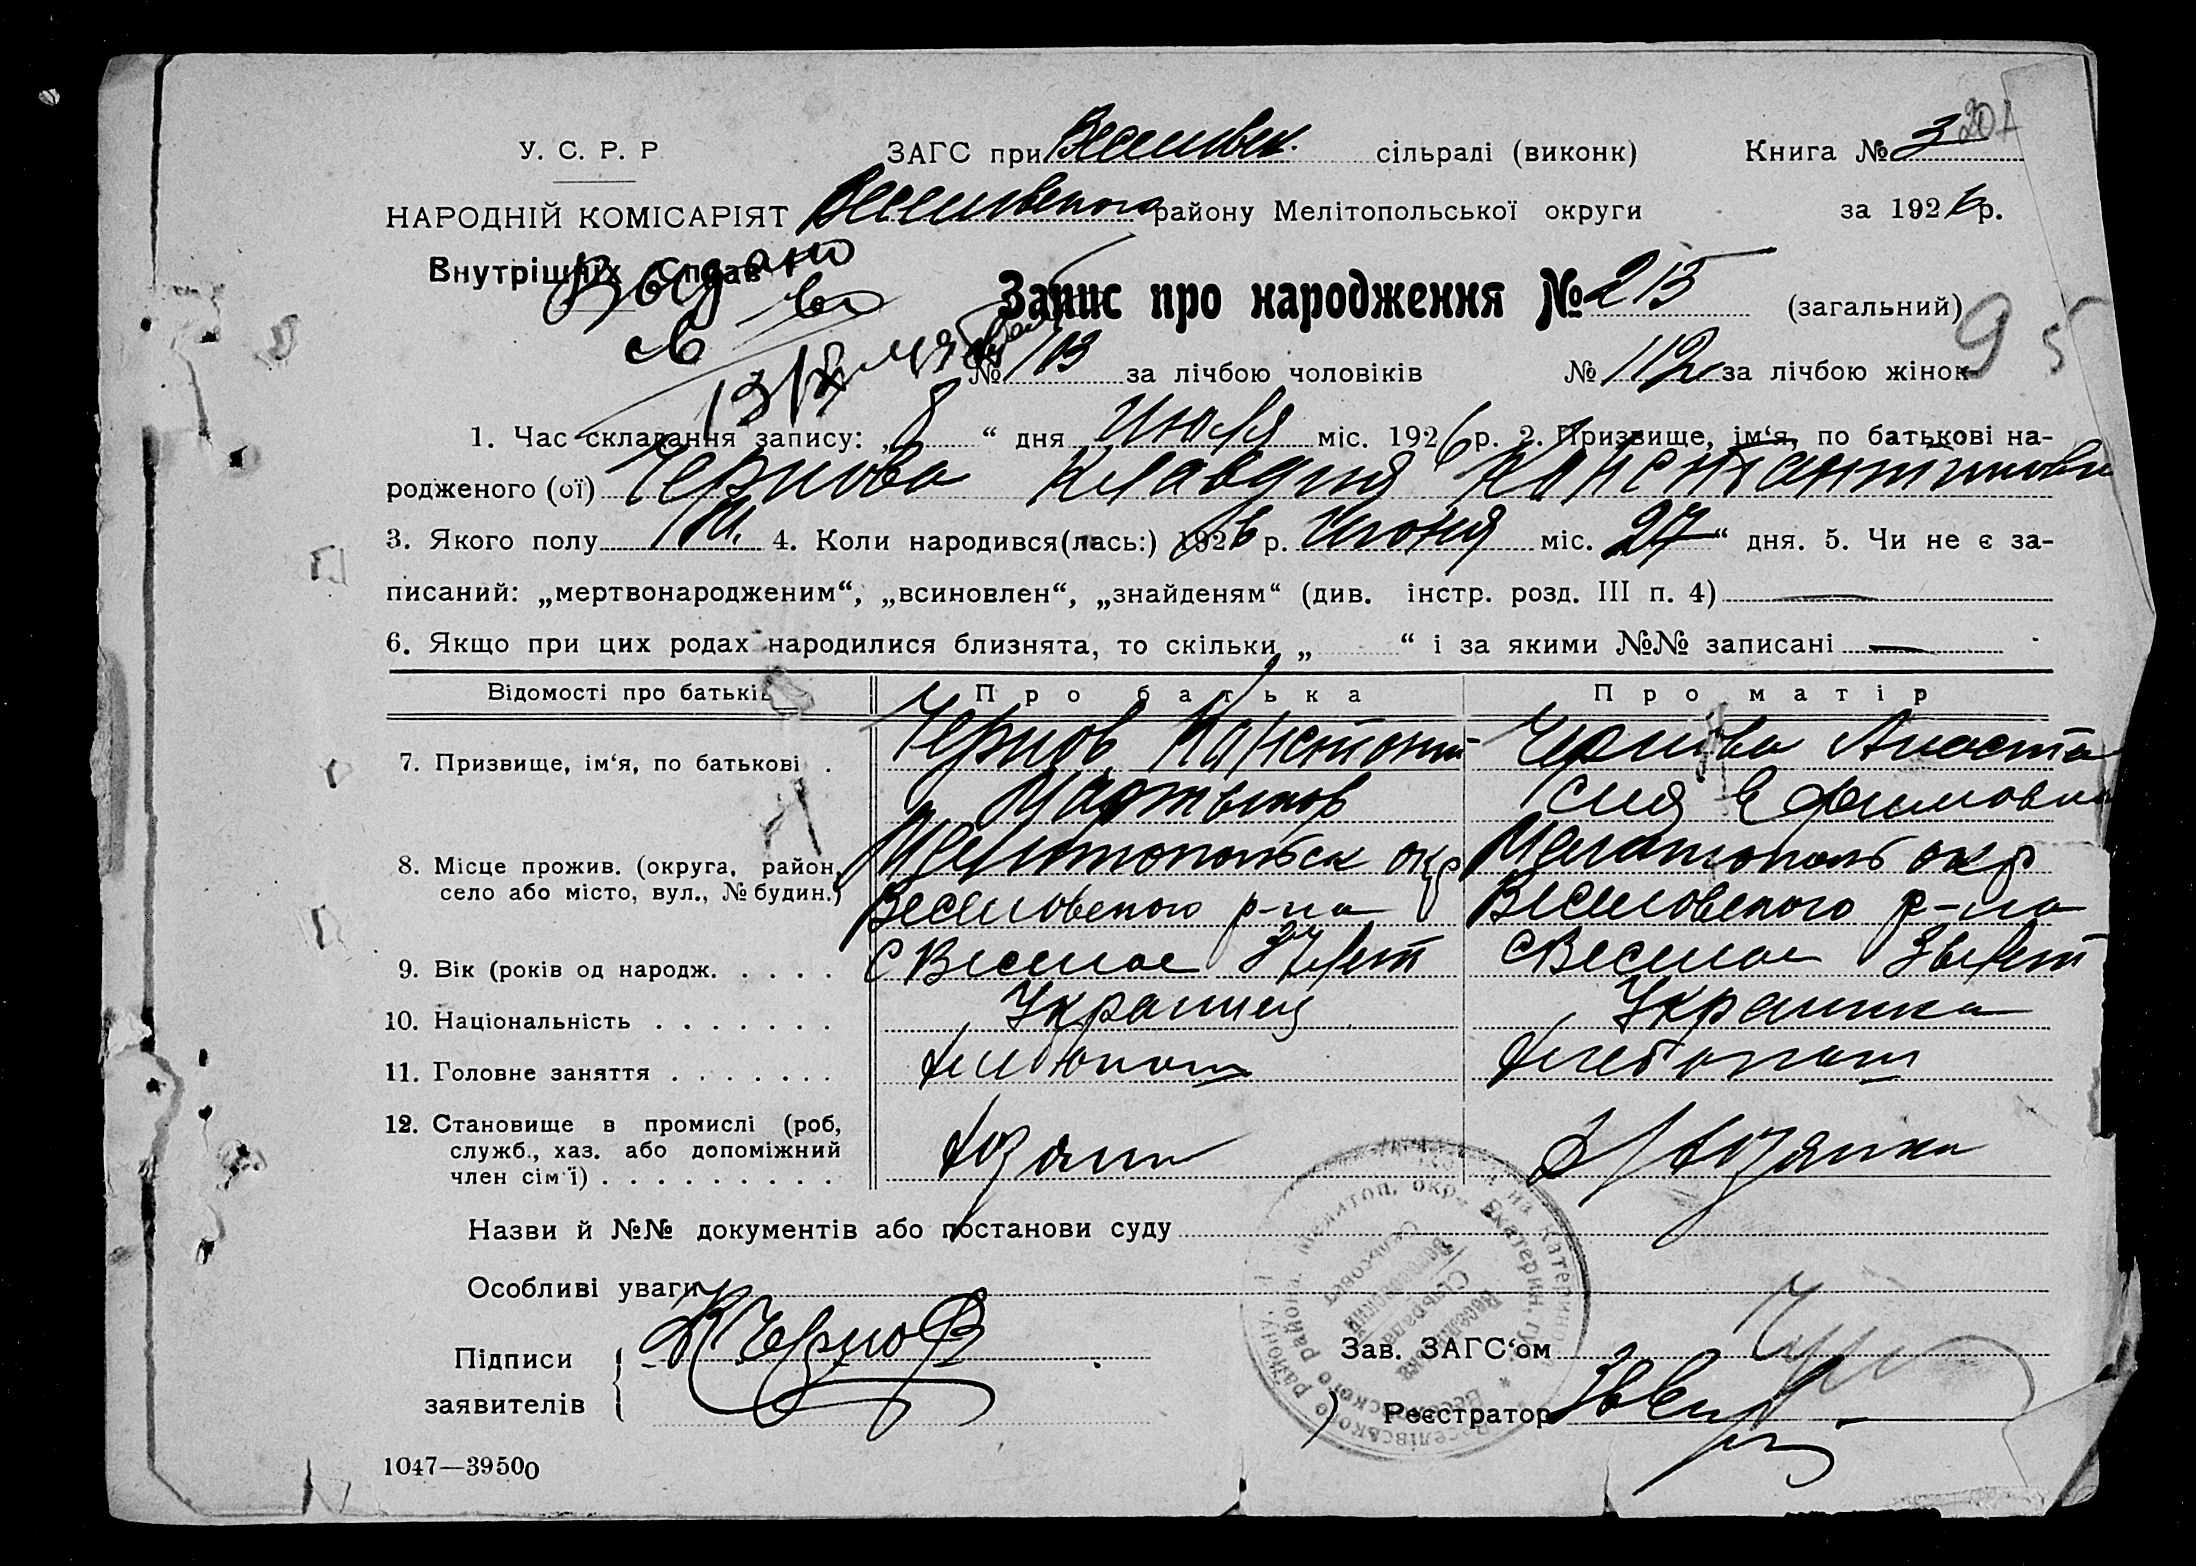 У. С. Р. Р ЗАГС при Веселовск. сільраді (виконк) Книга № 3 201
НАРОДНІЙ КОМІСАРІЯТ Веселовского району Мелітопольської округи за 1926 р.
Внутрішніх Справ
Выдано
св во
Запис про народження № 215 (загальний) 95
№ 103 за лічбою чоловіків № 112 за лічбою жінок
1. Час складання запису: „8“ дня Июля міс. 1926 р. 2. Призвище, ім‘я, по батькові на-
родженого (ої) Чернова Клавдия Константиновн
3. Якого полу 4. Коли народився(лась:) 1926 р. Июня міс. 27“ дня. 5. Чи не є за-
писаний: „мертвонародженим“, „всиновлен“, „знайденям“ (див. інстр. розд. III п. 4) —
6. Якщо при цих родах народилися близнята, то скільки „ “ і за якими №№ записані —
Відомості про батьків Про батька Про матір
7. Призвище, ім‘я, по батькові . Чернов Констонт Чернова Анаста
Мартынов сия Ефимовна
8. Місце прожив. (округа, район, Мелитопольск окр Мелитополь окр
село або місто, вул., № будин.) Веселовского р-на Веселовского р-на
9. Вік (років од народж. . . . . с Веселое 37 лет с Веселое 36 лет
10. Національність . . . . . . . Украинец Украинка
11. Головне заняття . . . . . . . Хлебопаш Хлебопаш
12. Становище в промислі (роб, Хозяин Хозяйка
служб., хаз. або допоміжний
член сім‘ї) . . . . . . . . .
Назви й №№ документів або постанови суду
Особливі уваги
Підписи
заявителів
К Чернов
Зав. ЗАГС‘ом
Реєстратор
1047—39500